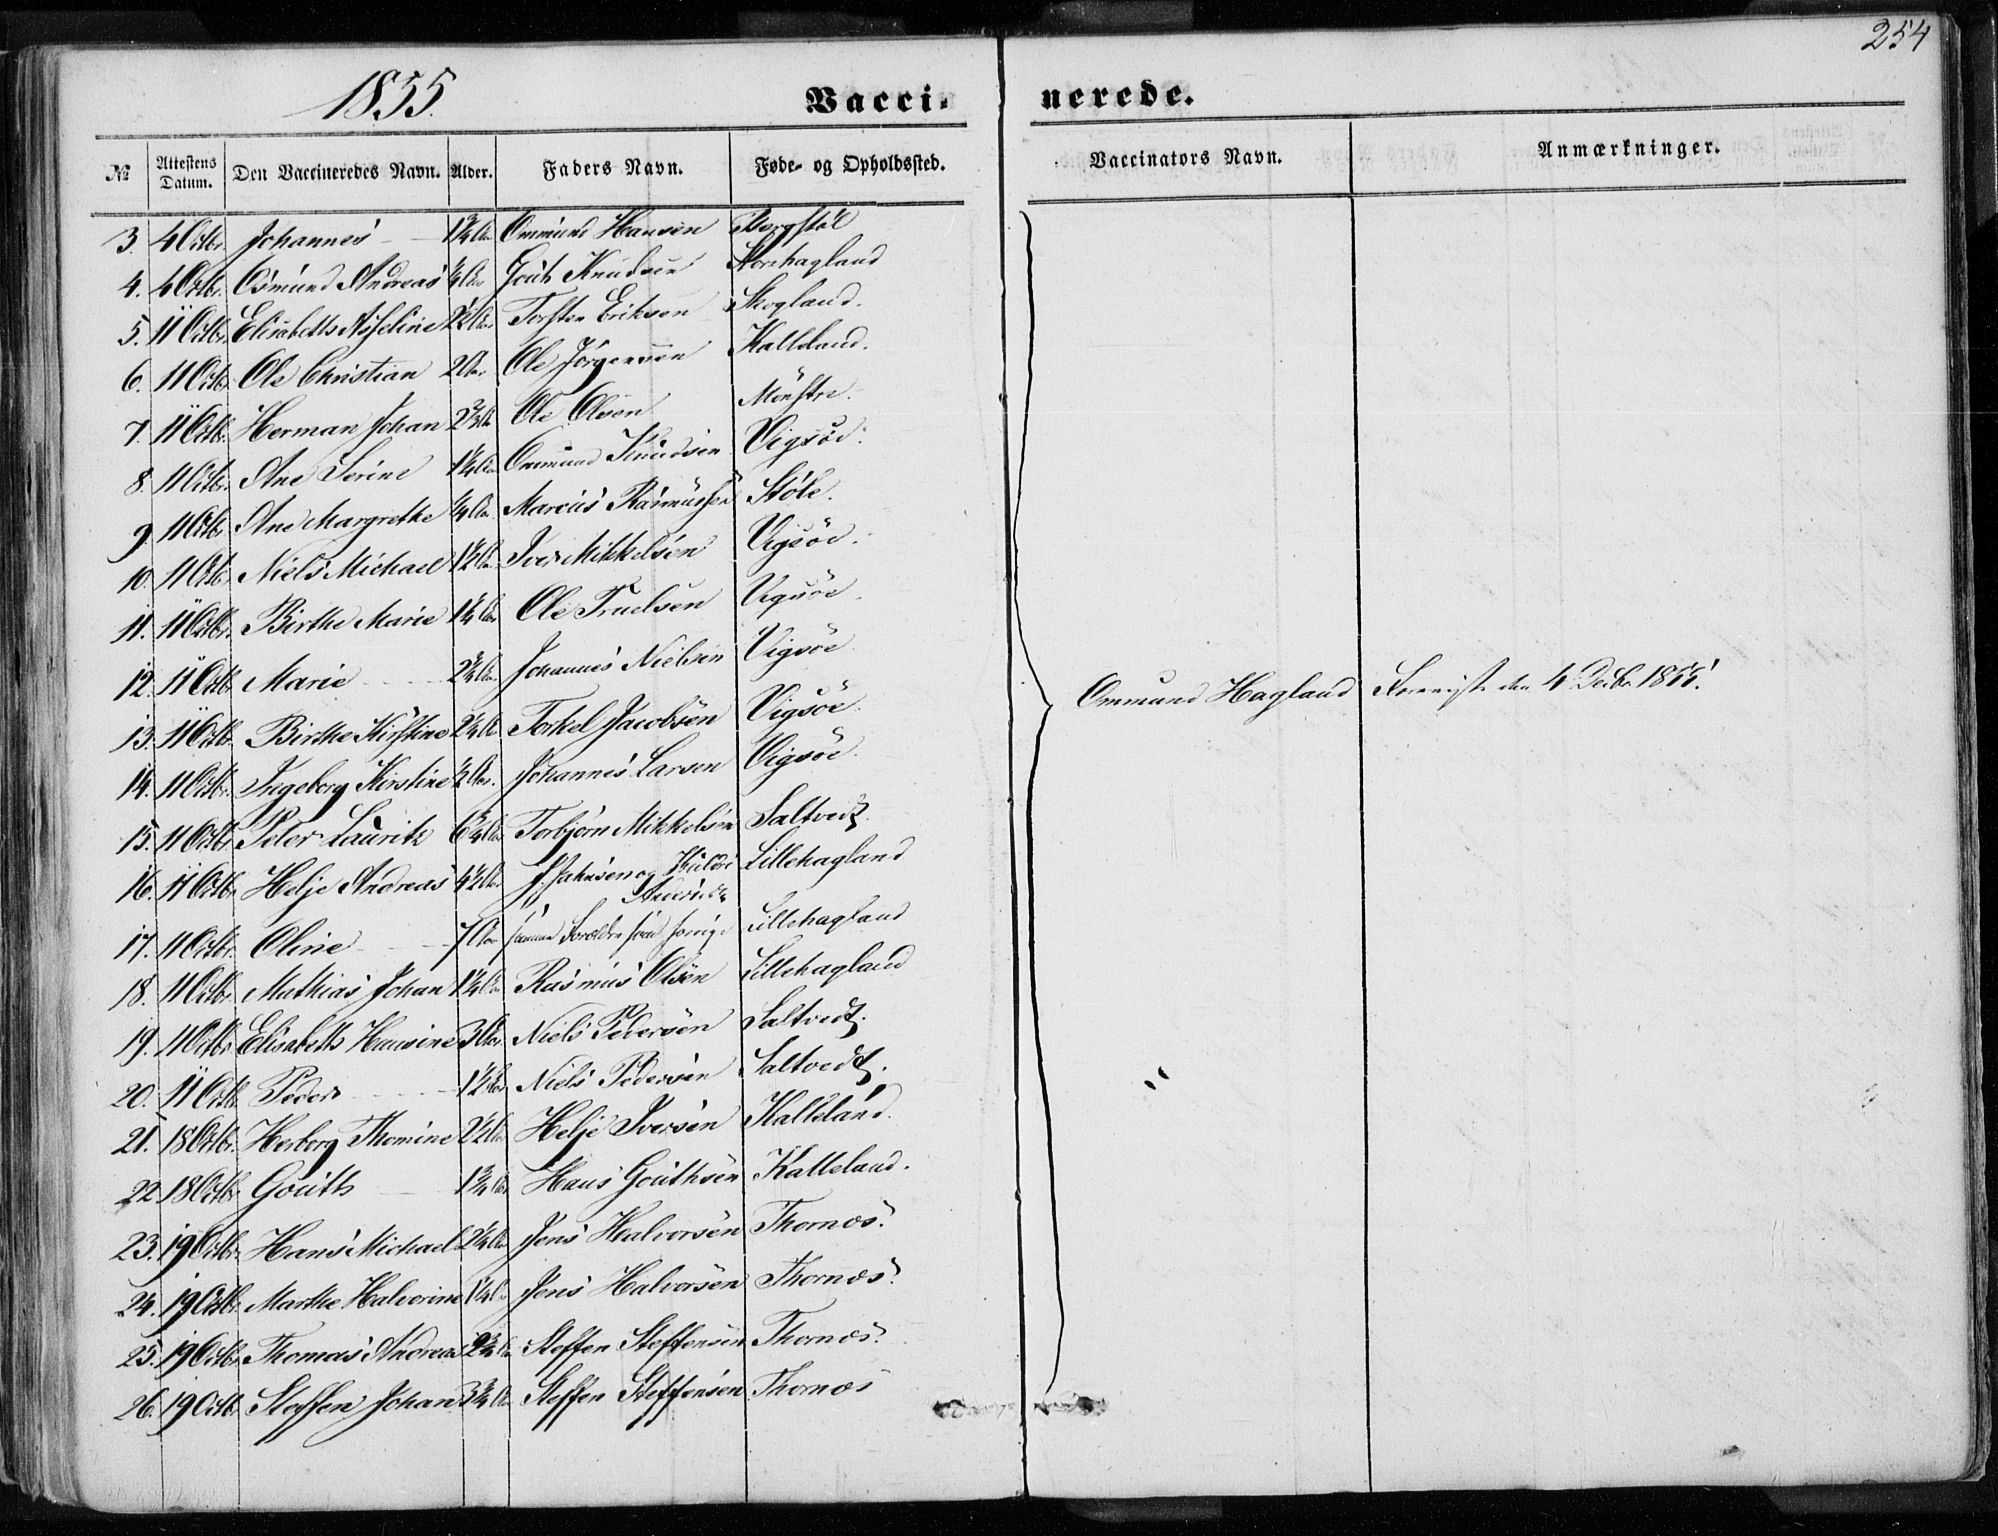 254
1855.
Vacci- nerede.
№ Attestens Datum. Den Vaccineredes Navn. Alder. Faders Navn. Føde- og Opholdssted. Vaccinators Navn. Anmærkninger.
3. 4 Octbr. Johannes 1¾ Aar Ommund Hansen
4. 4 Octbr. Osmund Andreas Gouth Knudsen Storehagland
5. 11 Octbr. Elisabeth 2½ Aar Torsten Eriksen Skogland.
6. 11 Octbr. Ole Christian 2 Aar Ole Jörgensen Kalleland.
7. 11 Octbr. Herman Johan Ole Olsen Mönstre.
8. 11 Octbr. Ane Serine 1¼ Aar Ommund Knudsen Vigsöe.
9. 11 Octbr. Ane Margrethe ¼ Aar Marcus Rasmussen Stöle.
10. 11 Octbr. Niels Michael 1½ Aar Iver Mikkelsen Vigsöe.
11. 11 Octbr. Birthe Marie 1¼ Aar Ole Truelsen Vigsöe.
12. 11 Octbr. Marie 2¾ Aar. Johannes Nielsen Vigsöe
13. 11 Octbr. Birthe Kirstine 2¼ Aar Torkel Jacobsen Vigsöe.
14. 11 Octbr. Ingeborg Kirstine ½ Aar. Johannes Larsen Vigsöe.
15. 11 Octbr. Peter Lauritz 6¾ Aar Torbjörn Mikkelsen Saltvedt.
16. 11 Octbr. Helje Andreas 4½ Aar J. Jahnsen og Huldre Lillehagland
17. 11 Octbr. Oline 7 Aar samme Forældre som forrige Lillehagland
18. 11 Octbr. Mathias Johan 1¼ Aar Rasmus Olsen Lillehagland
19. 11 Octbr. Elisabeth Hansine 3 Aar. Niels Pedersen Saltvedt.
20. 11 Octbr. Peder 1½ Aar Niels Pedersen Saltvedt.
21. 18 Octbr. Herborg Thomine 2½ Aar Helje Iversen Kalleland.
22. 18 Octbr. Gouth 1¾ Aar Hans Gouthsen Kalleland.
23. 19 Octbr. Hans Michael 2¼ Aar Jens Halvorsen Thornæs.
24. 19 Octbr. Marthe Halvorine ¼ Aar Jens Halvorsen Thornæs.
25. 19 Octbr. Thomas Andreas 2¾ Aar Steffen Steffensen Thornæs.
26. 19 Octbr. Steffen Johan 3¾ Aar Steffen Steffensen Thornæs
Ommund Hagland Foreviist den 4 Decbr. 1855.